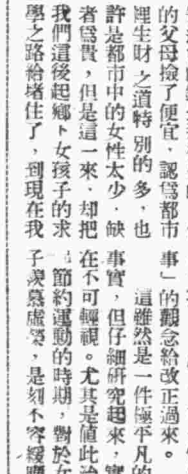 的父母撿了便宜，認爲都市
裡生財之道特別的多，也
許是都市中的女性太少，缺
者爲貴，但是這一來、却把
我們這後起鄉下女孩子的求
學之路給堵住了，到現在我
事」的觀念給改正過來。
這雖然是一件極平凡的
事實，但仔細研究起來，實
在不可輕視。尤其是值此
節約運動的時期，對於
子羨慕虛榮，是刻不容緩